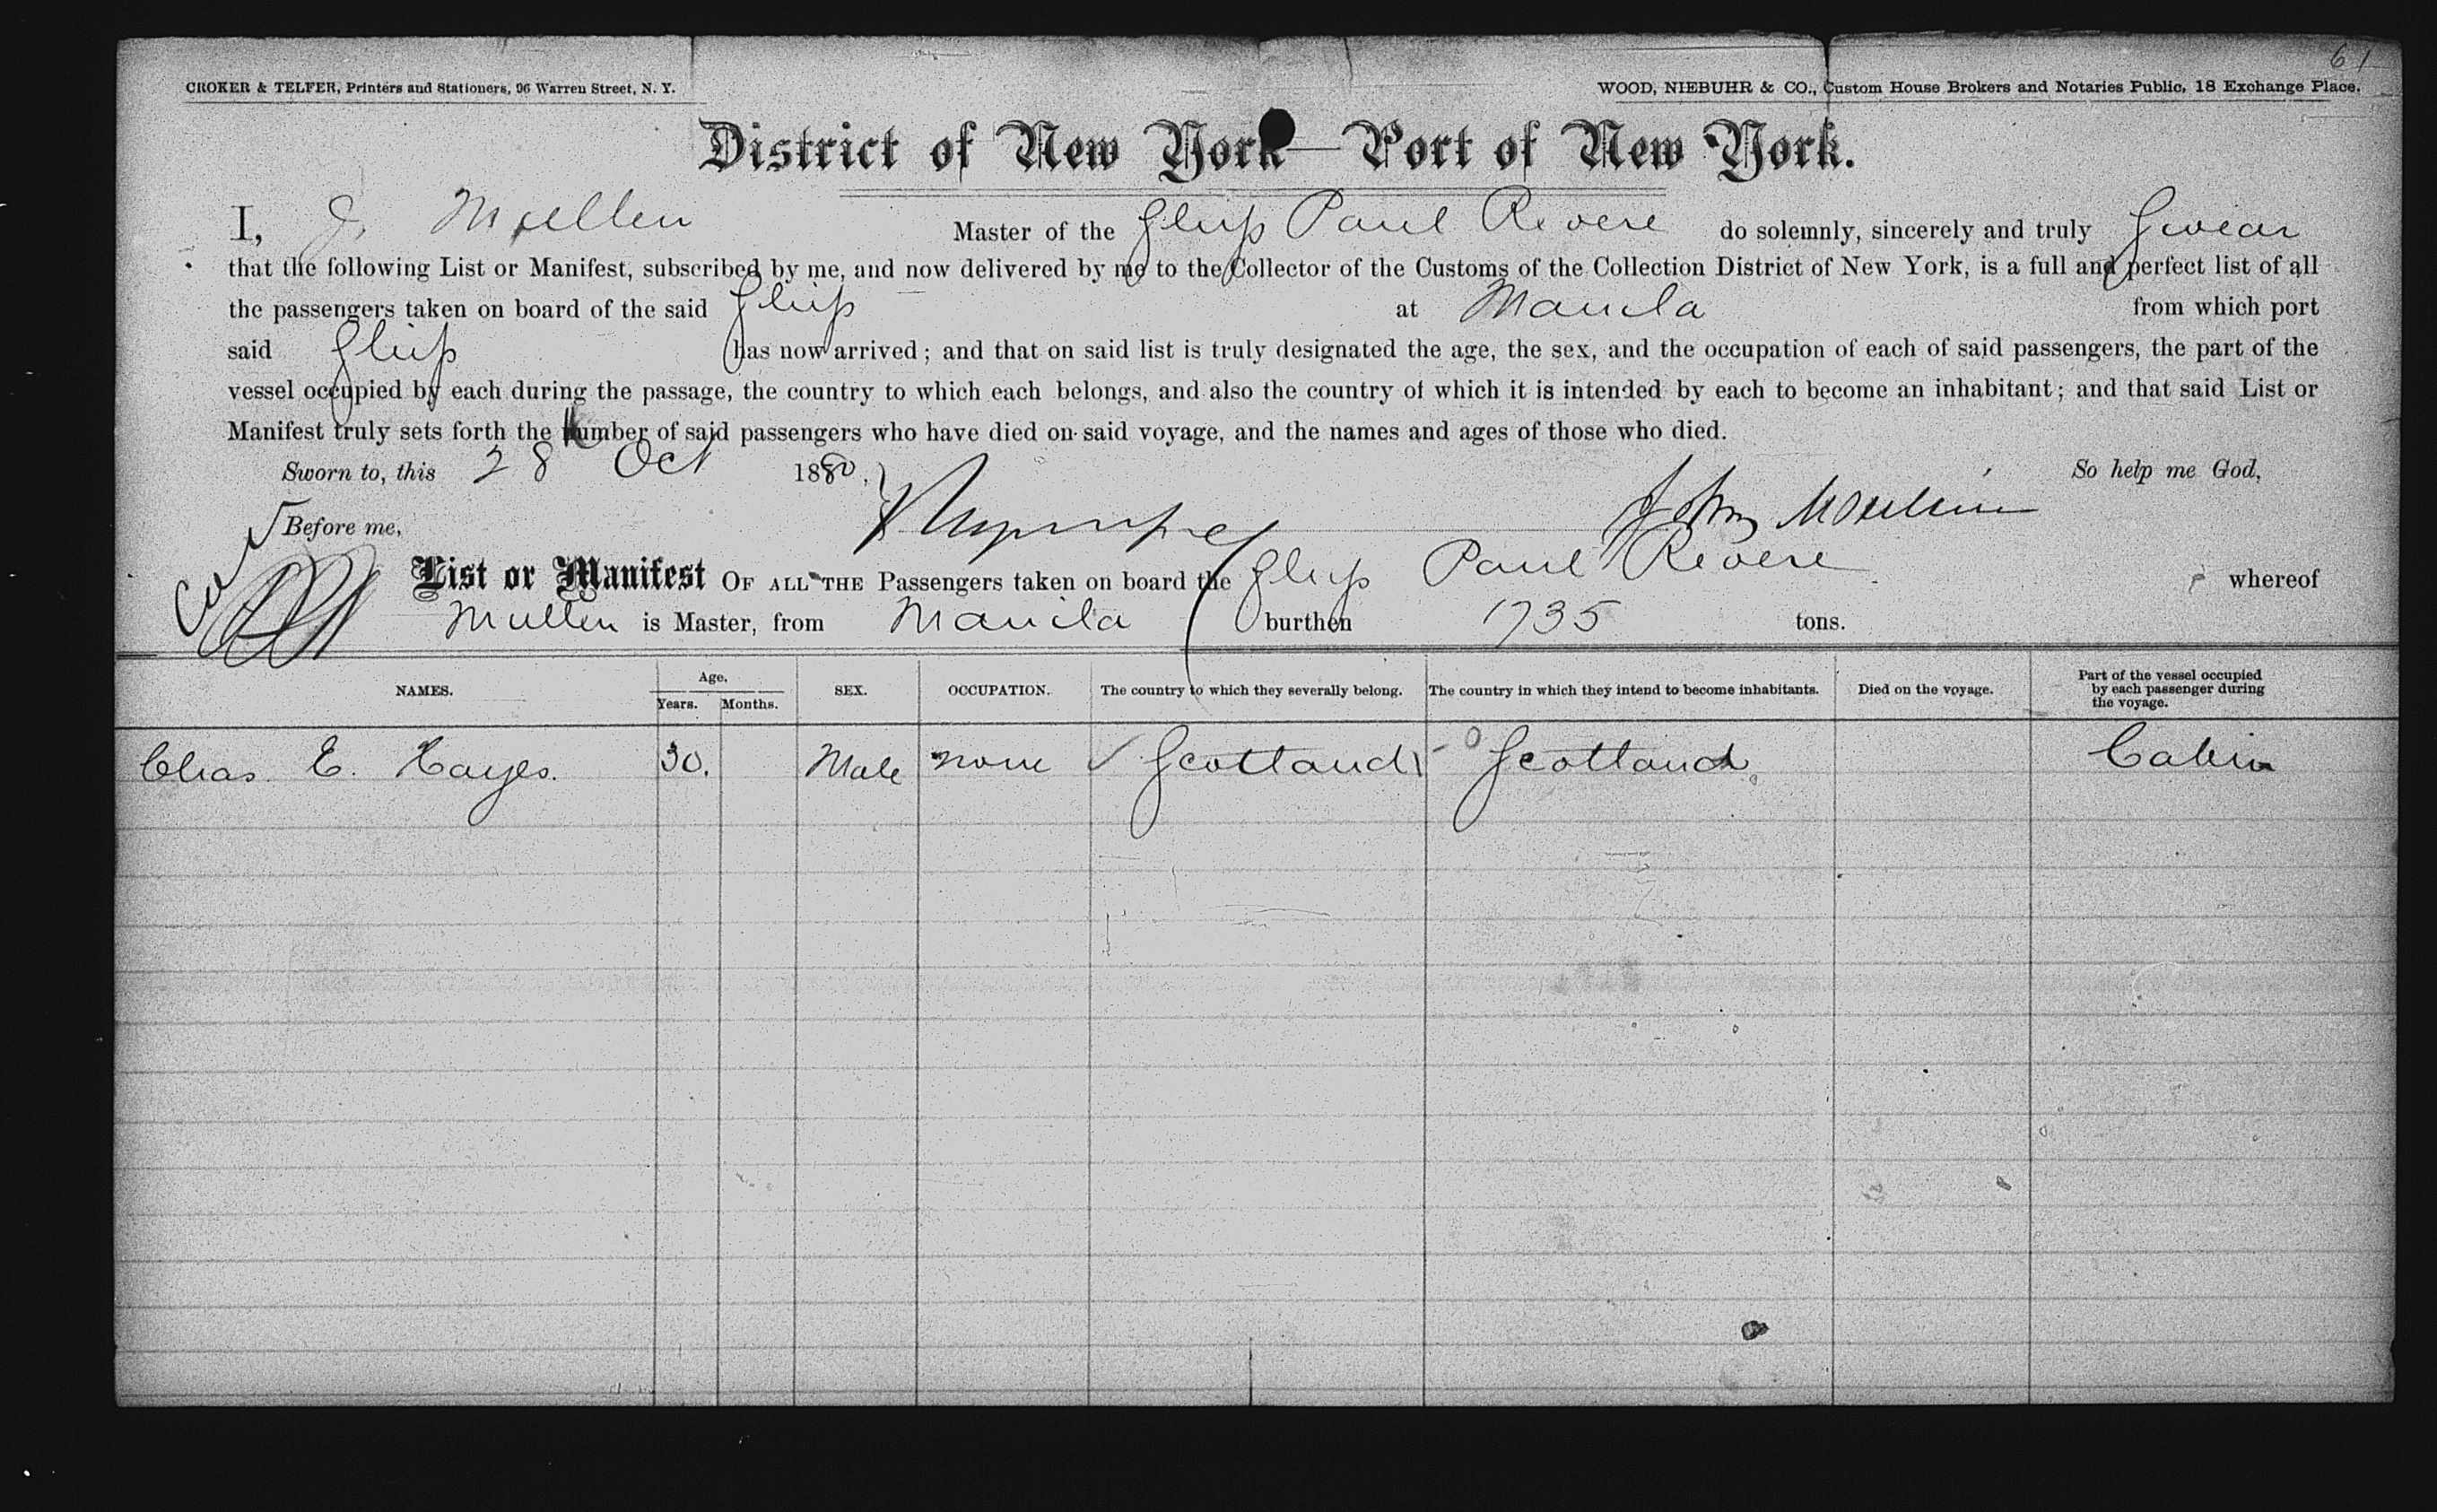 61
CROKER & TELFER, Printers and Stationers, 96 Warren Street, N. Y.
WOOD, NIEBUHR & CO., Custom House Brokers and Notaries Public, 18 Exchange Place.
District of New York—Port of New York.
I, J. Mullen Master of the Ship Paul Revere do solemnly, sincerely and truly Swear
that the following List or Manifest, subscribed by me, and now delivered by me to the Collector of the Customs of the Collection District of New York, is a full and perfect list of all
the passengers taken on board of the said Ship at Manila from which port
said Ship has now arrived; and that on said list is truly designated the age, the sex, and the occupation of each of said passengers, the part of the
vessel occupied by each during the passage, the country to which each belongs, and also the country of which it is intended by each to become an inhabitant; and that said List or
Manifest truly sets forth the number of said passengers who have died on said voyage, and the names and ages of those who died.
Sworn to, this 28 Oct 1880, So help me God,
Before me, John Mullin
List or Manifest OF ALL THE Passengers taken on board the Ship Paul Revere whereof
Mullen is Master, from Manila burthen 1735 tons.
NAMES. Age. Years. Months. SEX. OCCUPATION. The country to which they severally belong. The country in which they intend to become inhabitants. Died on the voyage. Part of the vessel occupied by each passenger during the voyage.
Chas E. Hayes. 30. Male none Scotland Scotland Cabin